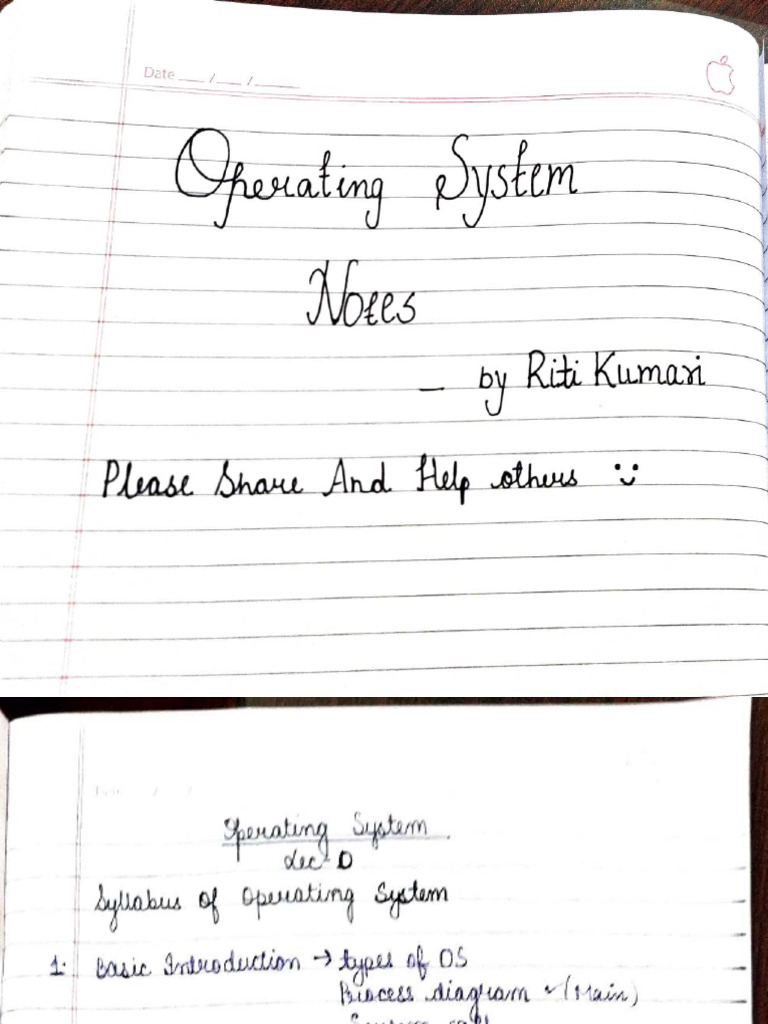 Date __ / __ / ____
Operating System
Notes
— by Riti Kumari
Please Share And Help others
Operating System
Lec- 0
Syllabus of Operating System
1: Basic Introduction → types of OS
Process diagram ✓ (Main)
System call